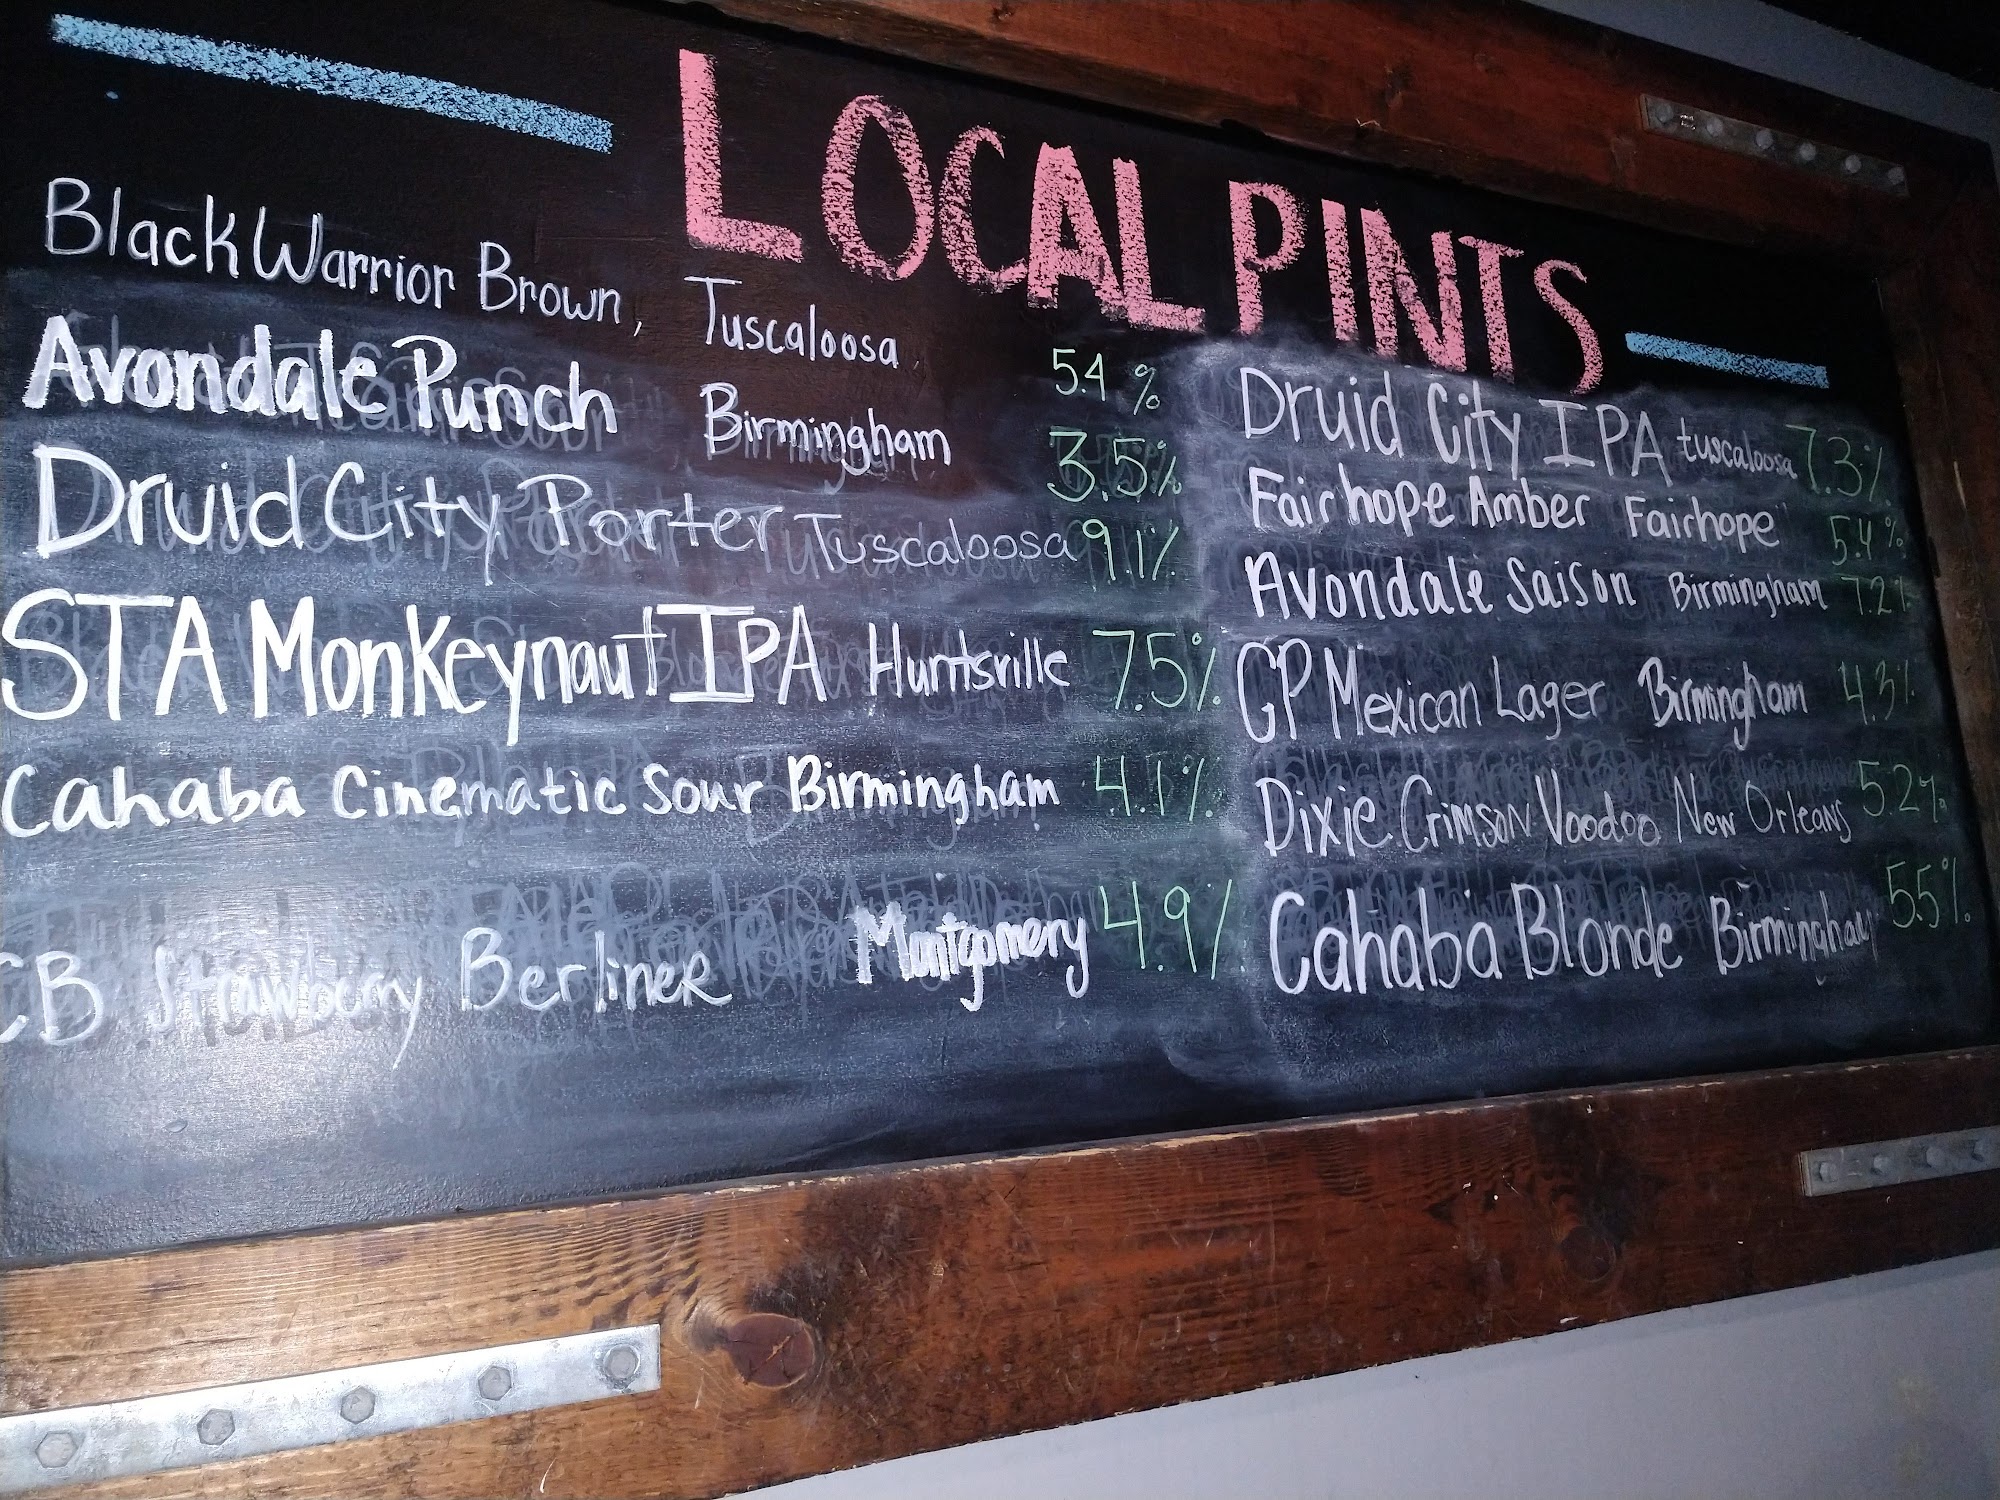 LOCAL PINTS
Black Warrior Brown, Tuscaloosa 5.4 %
Avondale Punch Birmingham 3.5%
Druid City Porter Tuscaloosa 9.1%
STA Monkeynaut IPA Huntsville 7.5%
Cahaba Cinematic Sour Birmingham 4.1%
CB Strawberry Berliner Montgomery 4.9%
Druid City IPA tuscaloosa 7.3%
Fairhope Amber Fairhope 5.4%
Avondale Saison Birmingham 7.2%
GP Mexican Lager Birmingham 4.3%
Dixie Crimson Voodoo New Orleans 5.2%
Cahaba Blonde Birmingham 5.5%